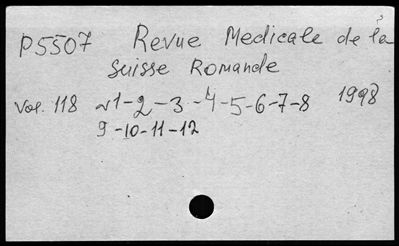 P5507 Revue Medicale de la
Suisse Romande
Vol. 118 N1-2-3-4-5-6-7-8 1998
9-10-11-12